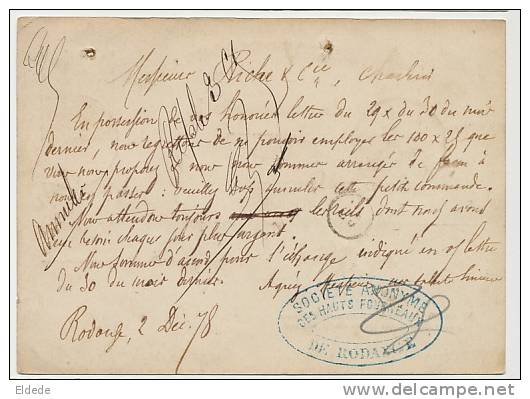 Messieurs Piche & Cie, Charleroi
En possession de vos honorées lettres du 29 & du 30 du mois
dernier, nous regrettons de ne pouvoir employer les 100 x 25 que
vous nous proposez nous nous sommes arrangés de façon à
nous en passer: veuillez donc annuler cette petite commande.
Nous attendons toujours les rails dont nous avons
un besoin chaque jour plus urgent.
Nous sommes d'accord pour l'échange indiqué en vs lettre
du 30 du mois dernier. Agréez Messieurs nos sincères
Rodange, 2 Déc. 78
Annulé
SOCIÉTÉ ANONYME
DES HAUTS FOURNEAUX
DE RODANGE
Eldede
delcampe.net